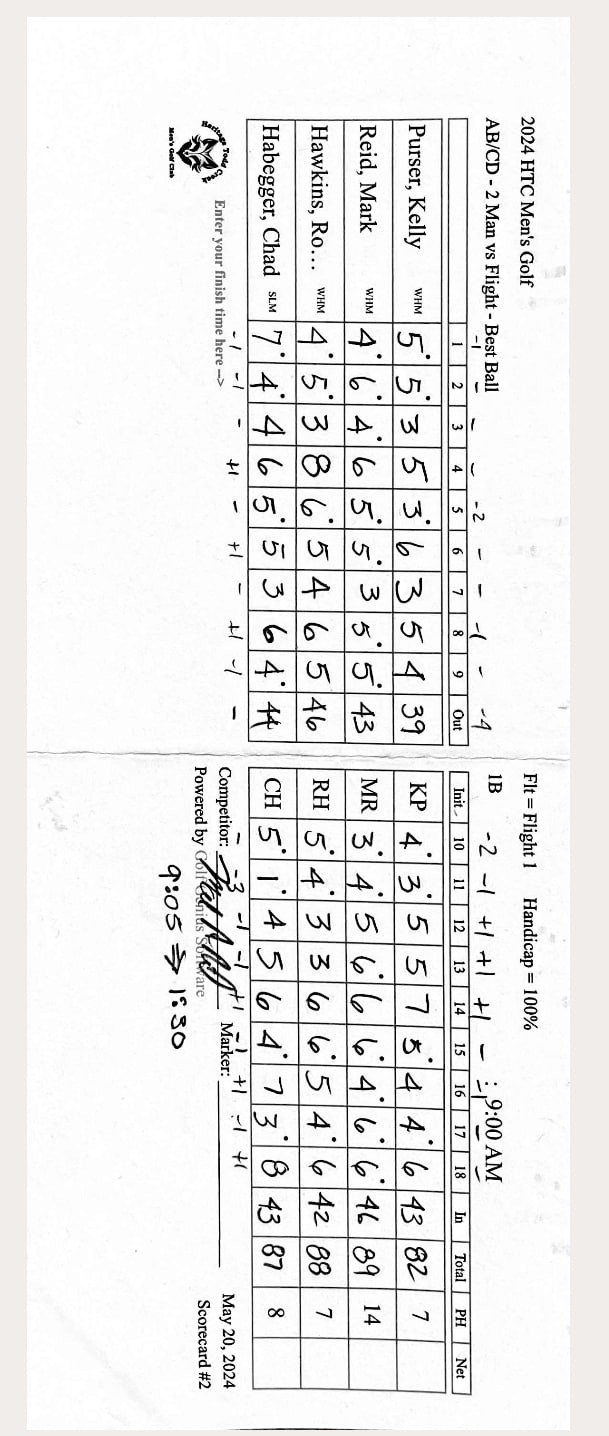 2024 HTC Men's Golf
AB/CD - 2 Man vs Flight - Best Ball
-1 - - - -2 - - -1 - -4
1 2 3 4 5 6 7 8 9 Out
Purser, Kelly WHM 5• 5• 3 5 3• 6 3 5 4 39
Reid, Mark WHM 4• 6• 4• 6 5• 5• 3 5• 5• 43
Hawkins, Ro... WHM 4• 5• 3 8 6• 5 4 6 5 46
Habegger, Chad SLM 7• 4• 4 6 5• 5 3 6 4• 44
-1 -1 - +1 - +1 - +1 -1 -
Heritage Todd Creek
Men's Golf Club
Enter your finish time here -->
Flt = Flight 1 Handicap = 100%
1B 9:00 AM
-2 -1 +1 +1 +1 - -1 - -
Init 10 11 12 13 14 15 16 17 18 In Total PH Net
KP 4• 3• 5 5 7 5• 4 4• 6 43 82 7
MR 3• 4• 5 6• 6 6• 4• 6• 6• 46 89 14
RH 5• 4• 3 3 6 6• 5 4• 6 42 88 7
CH 5• 1• 4 5 6 4• 7 3• 8 43 87 8
- -3 -1 -1 +1 -1 +1 -1 +1
Competitor: Marker: May 20, 2024
Powered by Golf Genius Software Scorecard #2
9:05 → 1:30